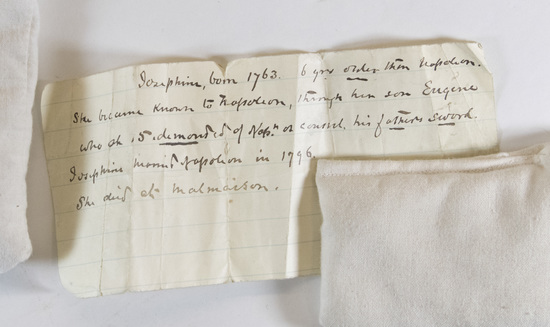 Josephine, born 1763. 6 yrs older then Napoleon.
She became known to Napoleon, through her son Eugène
who at 15 demanded of Napn as consul, his father's sword.
Josephine married Napoleon in 1796
She died at Malmaison.